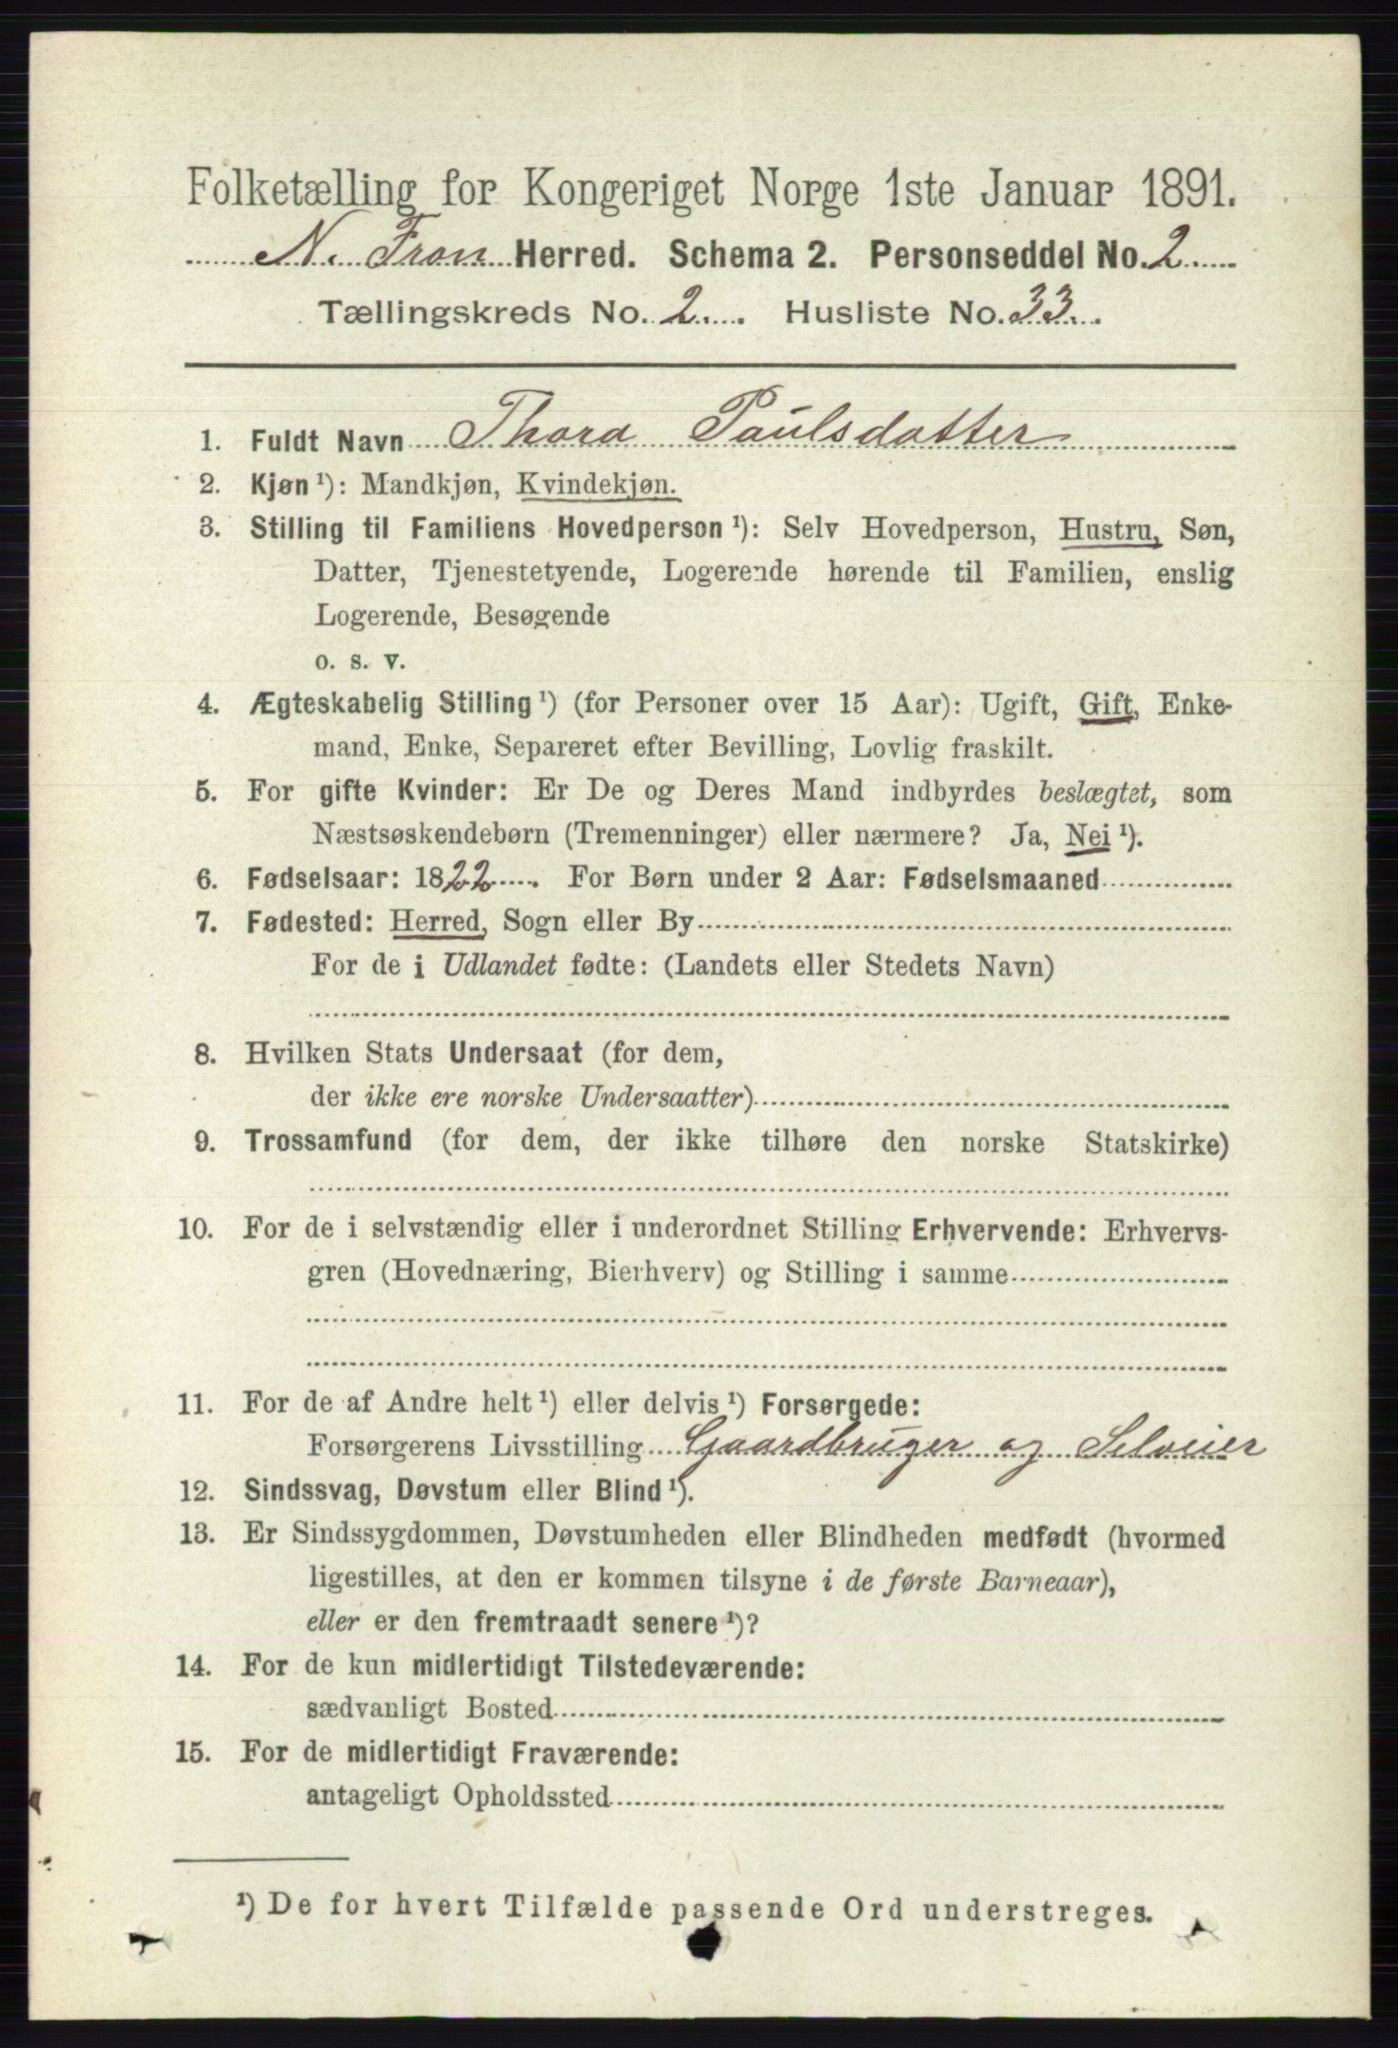 Folketælling for Kongeriget Norge 1ste Januar 1891.
N. Fron Herred. Schema 2. Personseddel No. 2
Tællingskreds No. 2. Husliste No. 33.
1. Fuldt Navn Thora Paulsdatter
2. Kjøn ¹): Mandkjøn, Kvindekjøn.
3. Stilling til Familiens Hovedperson ¹): Selv Hovedperson, Hustru, Søn,
Datter, Tjenestetyende, Logerende hørende til Familien, enslig
Logerende, Besøgende
o. s. v.
4. Ægteskabelig Stilling ¹) (for Personer over 15 Aar): Ugift, Gift, Enke-
mand, Enke, Separeret efter Bevilling, Lovlig fraskilt.
5. For gifte Kvinder: Er De og Deres Mand indbyrdes beslægtet, som
Næstsøskendebørn (Tremenninger) eller nærmere? Ja, Nei ¹).
6. Fødselsaar: 1822. For Børn under 2 Aar: Fødselsmaaned
7. Fødested: Herred, Sogn eller By
For de i Udlandet fødte: (Landets eller Stedets Navn)
8. Hvilken Stats Undersaat (for dem,
der ikke ere norske Undersaatter)
9. Trossamfund (for dem, der ikke tilhøre den norske Statskirke)
10. For de i selvstændig eller i underordnet Stilling Erhvervende: Erhvervs-
gren (Hovednæring, Bierhverv) og Stilling i samme
11. For de af Andre helt ¹) eller delvis ¹) Forsørgede:
Forsørgerens Livsstilling Gaardbruger og Selveier
12. Sindssvag, Døvstum eller Blind ¹).
13. Er Sindssygdommen, Døvstumheden eller Blindheden medfødt (hvormed
ligestilles, at den er kommen tilsyne i de første Barneaar),
eller er den fremtraadt senere ¹)?
14. For de kun midlertidigt Tilstedeværende:
sædvanligt Bosted
15. For de midlertidigt Fraværende:
antageligt Opholdssted
¹) De for hvert Tilfælde passende Ord understreges.